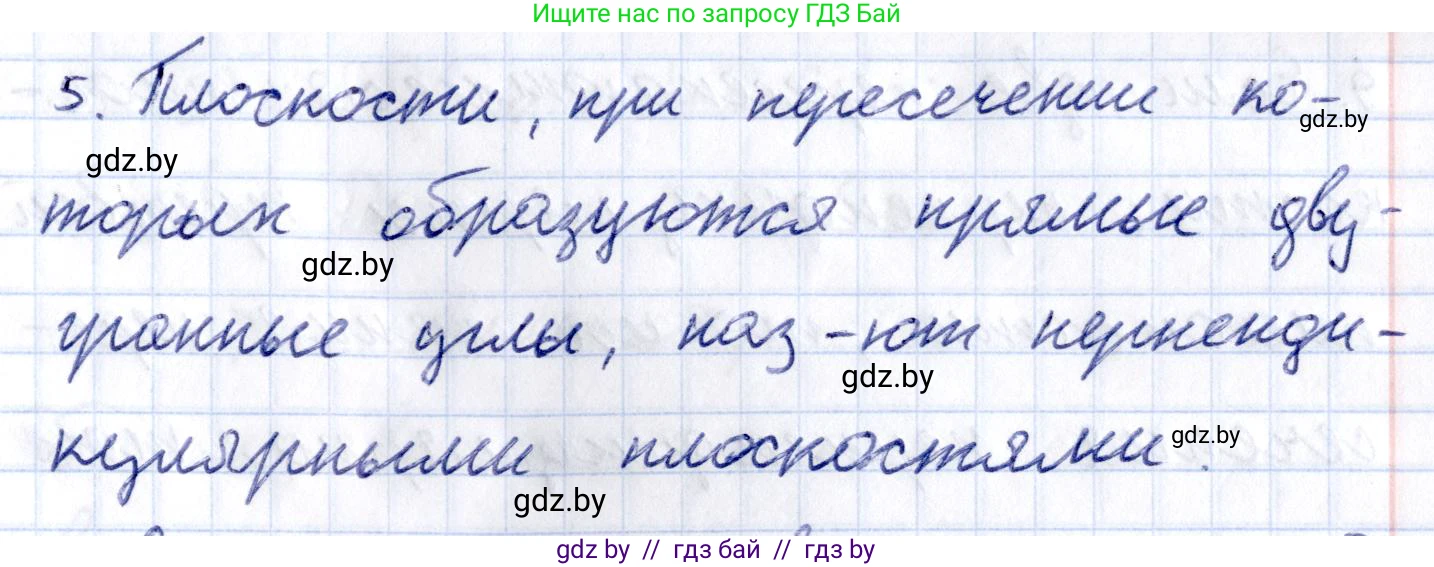 Ищите нас по запросу ГДЗ Бай
5. Плоскости, при пересечении ко-
gdz.by
gdz.by
торых образуются прямые дву-
gdz.by
гранные углы, наз-ют перпенди-
gdz.by
кулярными плоскостями.
gdz.by
gdz.by
gdz by // гдз бай // гдз by